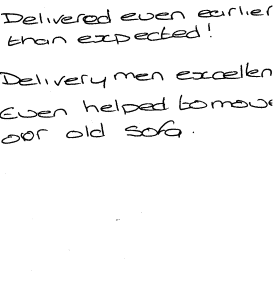 Delivered even earlier
than expected!
Delivery men excellen
Even helped to move
our old sofa.